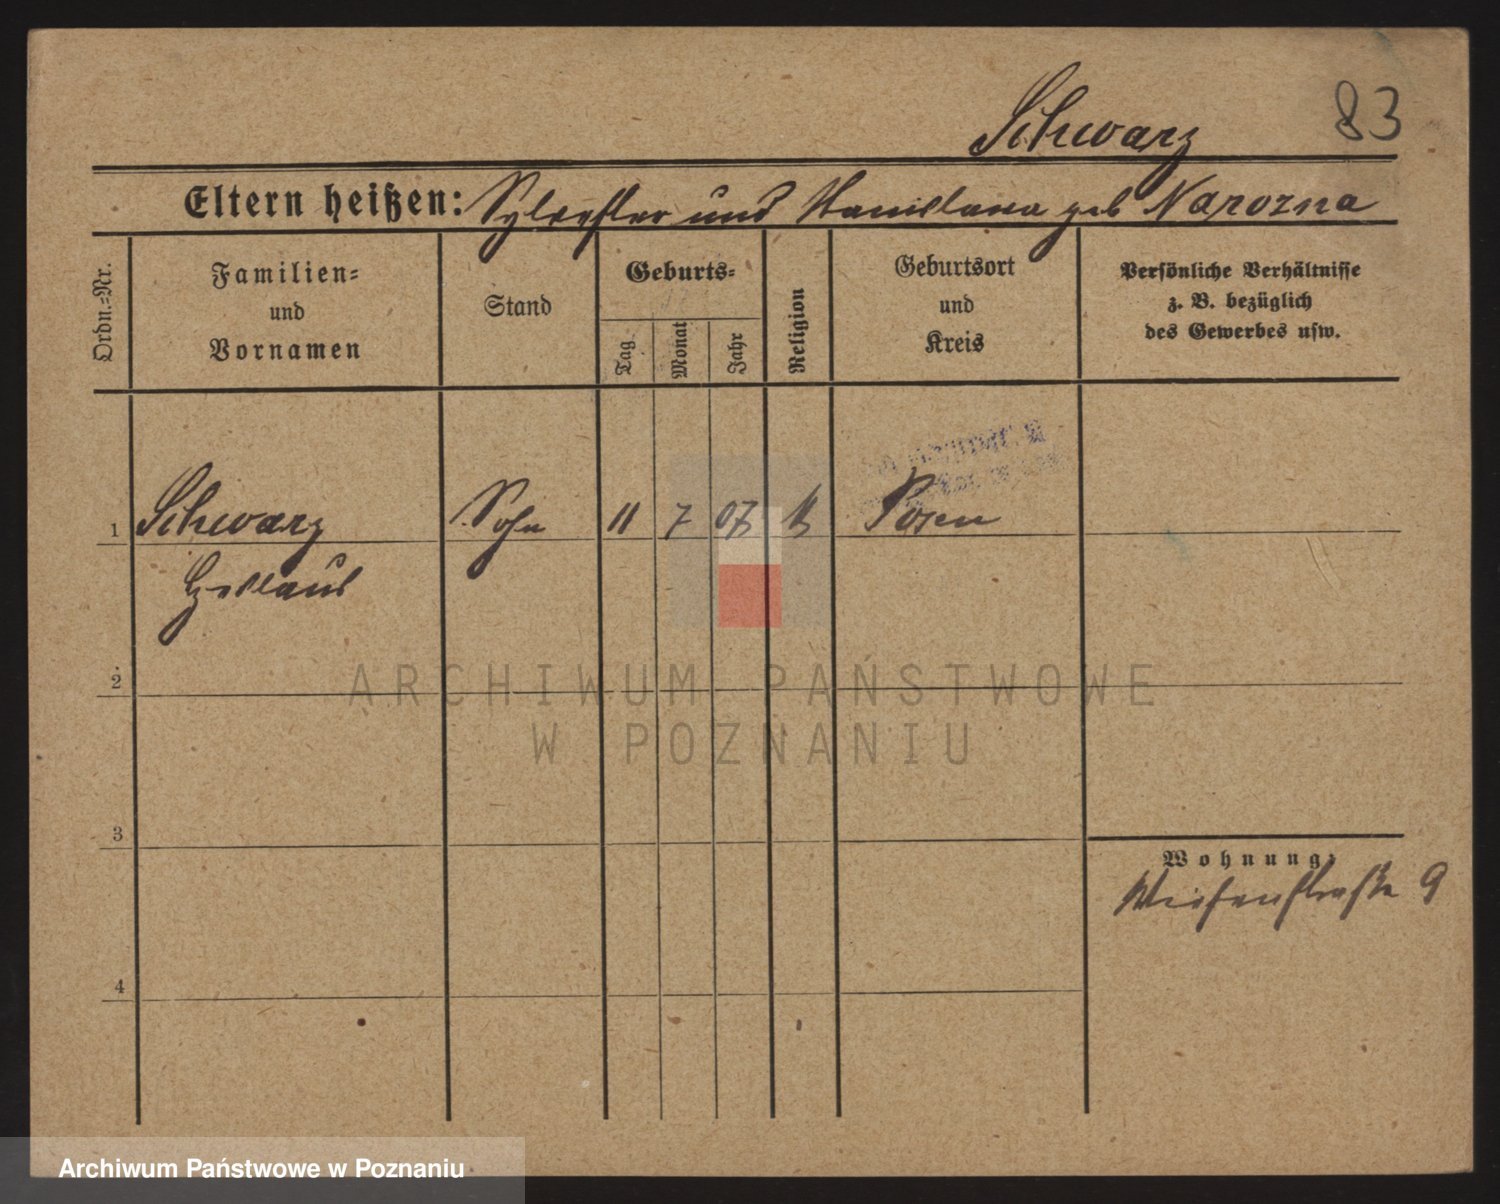 83
Schwarz
Eltern heißen: Sylvester und Stanislawa geb Narozna
Ordn.=Nr.
Familien=
und
Vornamen
Stand
Geburts=
Tag
Monat
Jahr
Religion
Geburtsort
und
Kreis
Persönliche Verhältnisse
z. B. bezüglich
des Gewerbes usw.
1 Schwarz Sohn 11 7 07 k Posen
Czeslaus
2
ARCHIWUM PAŃSTWOWE
W POZNANIU
3
Wohnung:
Wiesenstraße 9
4
Archiwum Państwowe w Poznaniu